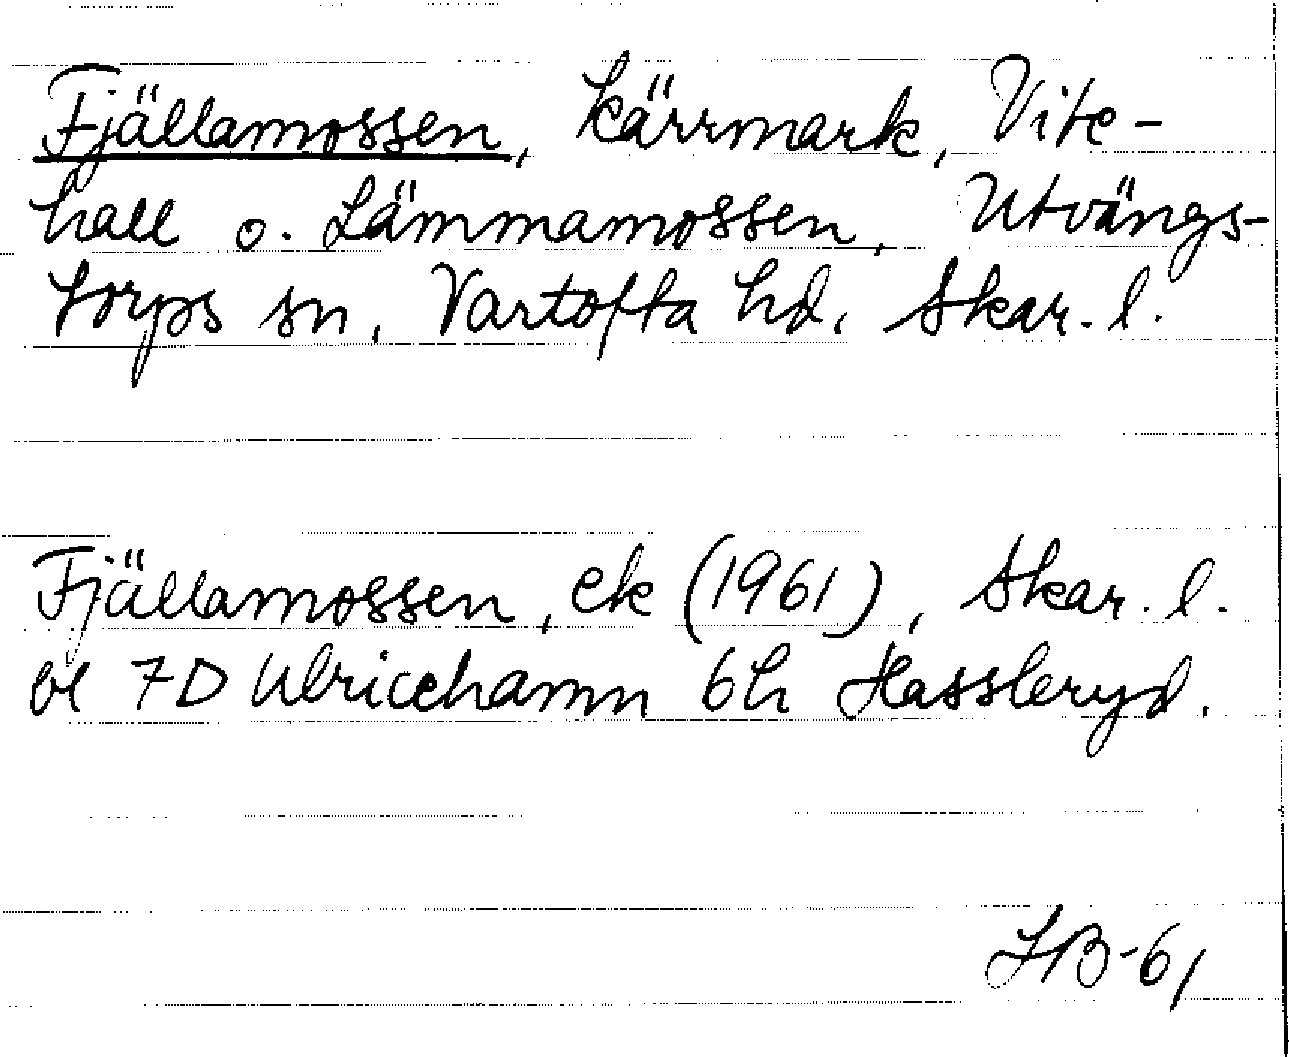 Fjällamossen, kärrmark, Vite-
hall o. Lämmamossen, Utvängs-
torps sn, Vartofta hd, Skar. l.
Fjällamossen, ek (1961), Skar. l.
bl 7D Ulricehamn 6h Hassleryd.
HB-61